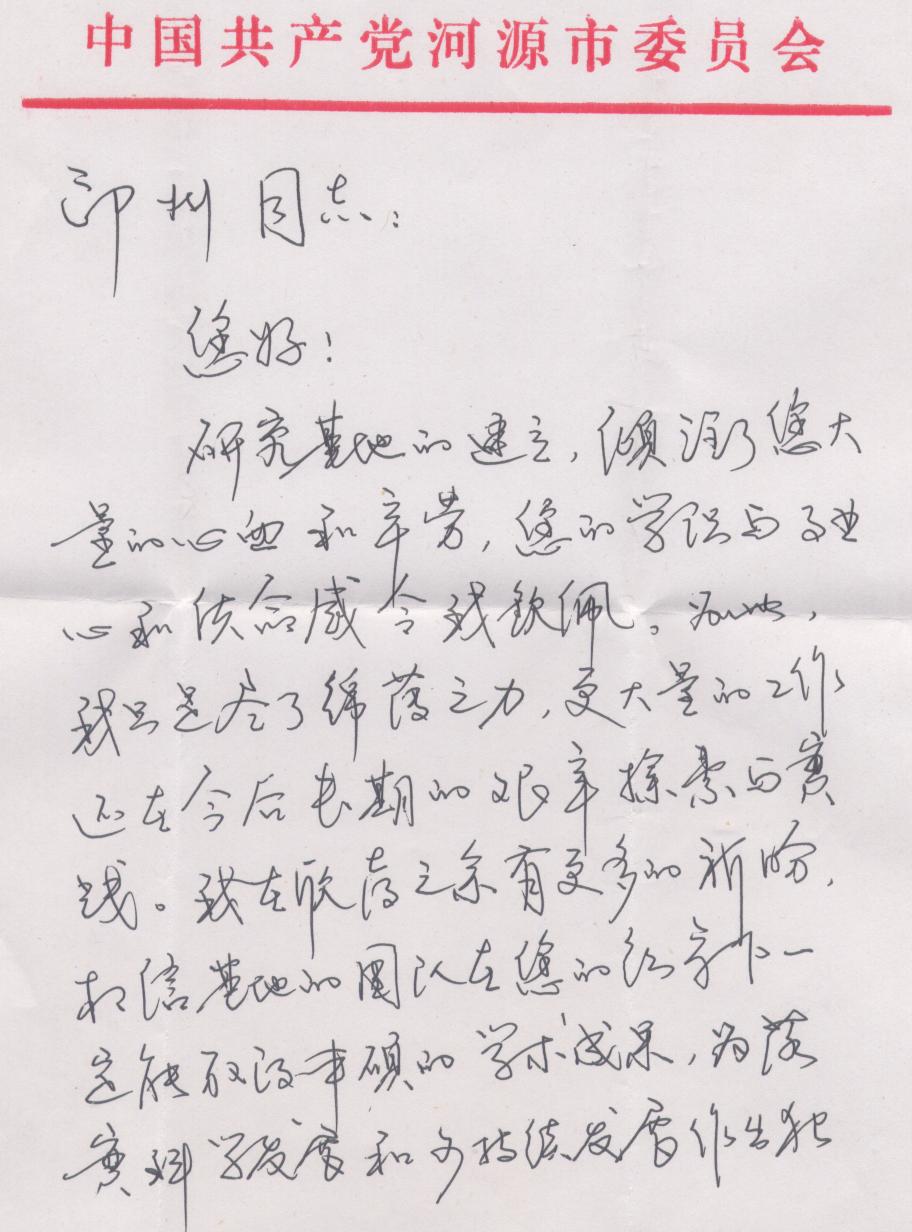 中国共产党河源市委员会
同志：
您好！
研究基地的建立，倾注了您大
量的心血和辛劳，您的学识与事业
心和使命感令我钦佩。为此，
我只是尽了绵薄之力，更大量的工作
还在今后长期的艰辛探索与实
践。我在欣喜之余有更多的祈盼，
相信基地的团队在您的领导下一
定能取得丰硕的学术成果，为落
实科学发展和可持续发展作出独